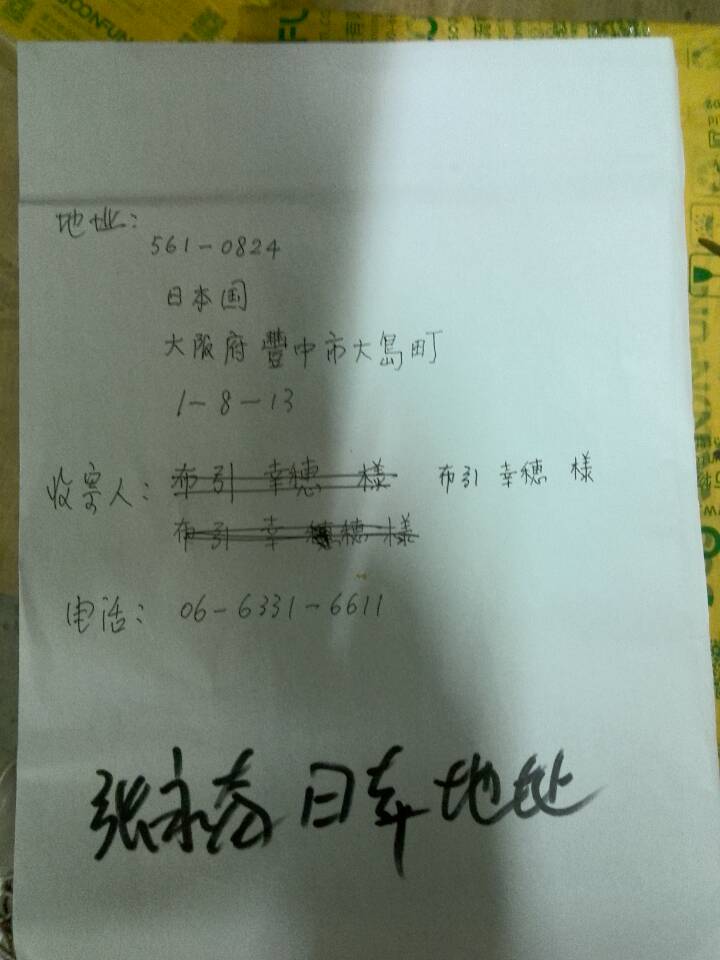 地址：
561-0824
日本国
大阪府豊中市大島町
1-8-13
收寄人： 布引 幸穂 様 布引 幸穂 様
布引 幸 穂 様
电话： 06-6331-6611
张永 日本地址